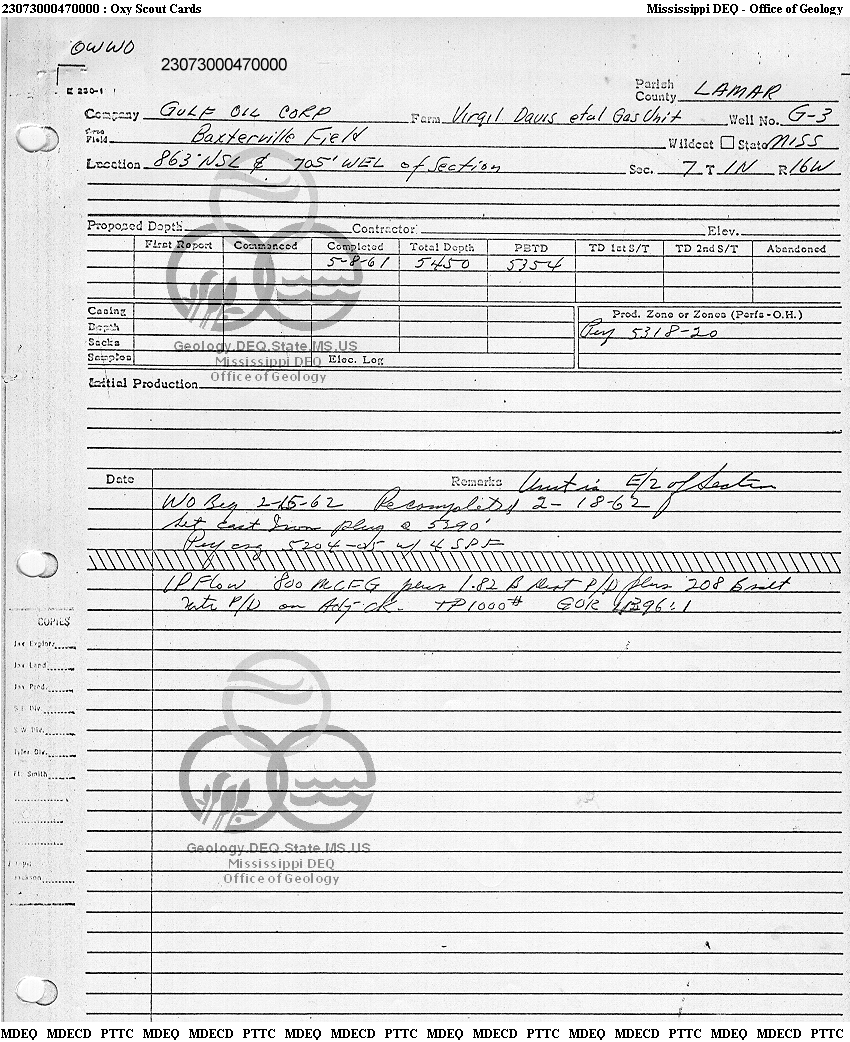 23073000470000 : Oxy Scout Cards Mississippi DEQ - Office of Geology
OWWO
23073000470000
E 230-1
Parish
County LAMAR
Company GULF OIL CORP Farm Virgil Davis etal Gas Unit Well No. G-3
Area
Field Baxterville Field Wildcat State MISS
Location 863' NSL & 705' WEL of Section Sec. 7 T 1N R 16W
Proposed Depth Contractor Elev.
First Report Commenced Completed Total Depth PBTD TD 1st S/T TD 2nd S/T Abandoned
5-8-61 5450 5354
Casing Prod. Zone or Zones (Perfs - O.H.)
Depth Perf 5318-20
Sacks
Samples Elec. Log
Geology.DEQ.State.MS.US
Mississippi DEQ
Office of Geology
Initial Production
Date Remarks Unit is E/2 of Section
WO Beg 2-15-62 Recompleted 2-18-62
Set Cast Iron plug @ 5390'
Perf csg 5204-05 w/ 4 SPF
IP Flow 800 MCFG plus 1.82 B Dist P/D plus 208 B salt
wtr P/D on Adj. CK. TP 1000# GOR
COPIES
Jax Explore
Jax Land
Jax Prod.
S.E. Div.
S.W. Div.
Tyler Div.
Ft. Smith
Jackson
Geology.DEQ.State.MS.US
Mississippi DEQ
Office of Geology
MDEQ MDECD PTTC MDEQ MDECD PTTC MDEQ MDECD PTTC MDEQ MDECD PTTC MDEQ MDECD PTTC MDEQ MDECD PTTC